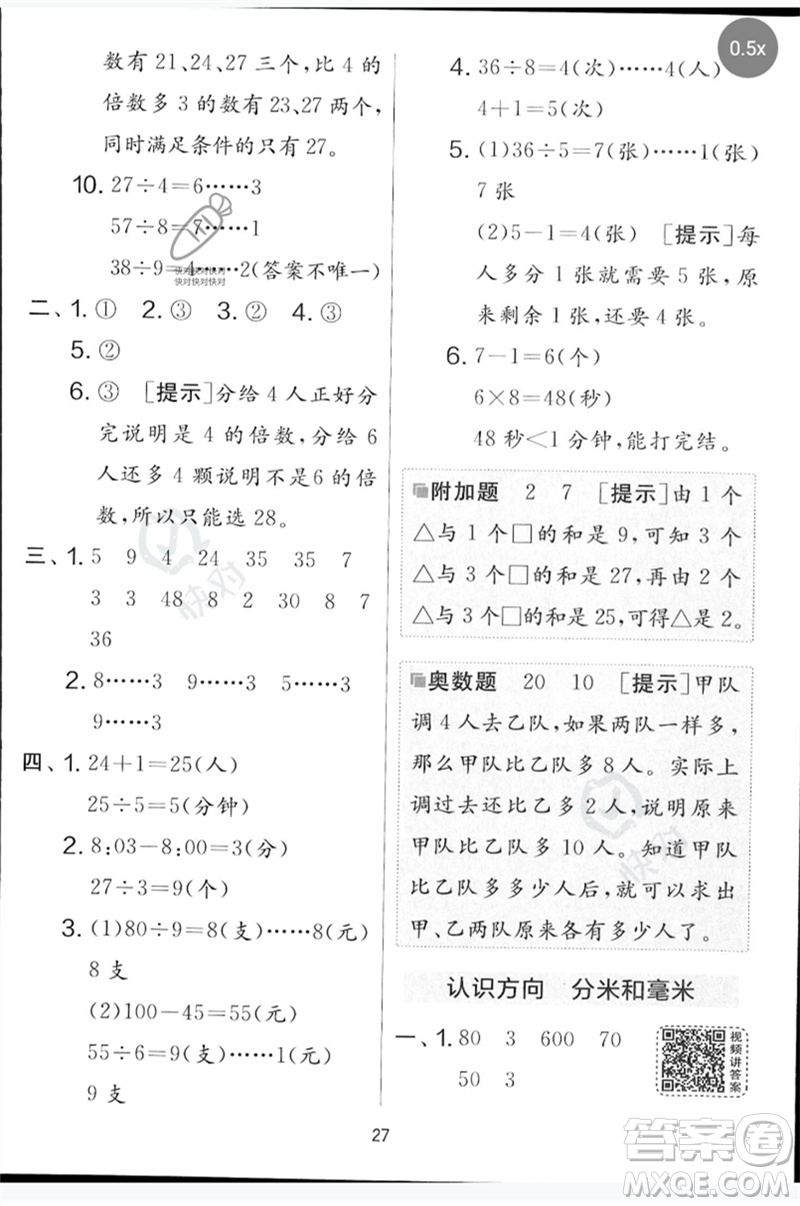 数有 21、24、27 三个,比 4 的
倍数多 3 的数有 23、27 两个,
同时满足条件的只有 27。
10. 27÷4=6……3
57÷8=7……1
38÷9=4……2(答案不唯一)
快对快对快对
快对快对快对
二、1. ① 2. ③ 3. ② 4. ③
5. ②
6. ③ [提示]分给 4 人正好分
完说明是 4 的倍数,分给 6
人还多 4 颗说明不是6 的倍
数,所以只能选 28。
三、1. 5 9 4 24 35 35 7
3 3 48 8 2 30 8 7
36
2. 8……3 9……3 5……3
9……3
四、1. 24+1=25(人)
25÷5=5(分钟)
2. 8:03-8:00=3(分)
27÷3=9(个)
3. (1)80÷9=8(支)……8(元)
8 支
(2)100-45=55(元)
55÷6=9(支)……1(元)
9 支
0.5x
4. 36÷8=4(次)……4(人)
4+1=5(次)
5. (1)36÷5=7(张)……1(张)
7 张
(2)5-1=4(张) [提示]每
人多分 1 张就需要 5 张,原
来剩余 1 张,还要 4 张。
6. 7-1=6(个)
6×8=48(秒)
48 秒<1 分钟,能打完结。
附加题 2 7 [提示]由 1 个
△与 1 个□的和是 9,可知 3 个
△与 3 个□的和是 27,再由 2 个
△与 3 个□的和是 25,可得△是 2。
奥数题 20 10 [提示]甲队
调 4 人去乙队,如果两队一样多,
那么甲队比乙队多 8 人。实际上
调过去还比乙多 2 人,说明原来
甲队比乙队多 10 人。知道甲队
比乙队多多少人后,就可以求出
甲、乙两队原来各有多少人了。
认识方向 分米和毫米
一、1. 80 3 600 70
50 3
视频讲答案
27
快对
快对
答案卷
MXQE.COM